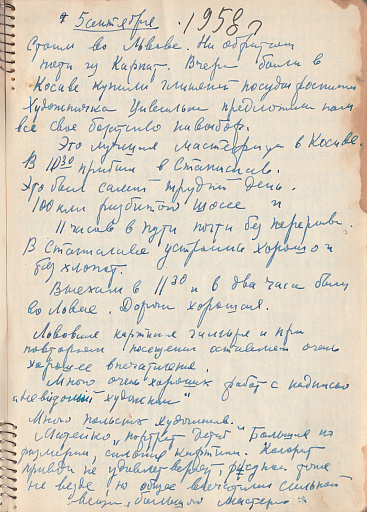 5 сентября 1958 г
Стоим во Львове. На обратном
пути из Карпат. Вчера были в
Косиве купили глиняной посуды
Художница Цвилык предложила нам
все свое богатство на выбор.
Это лучшая мастерица в Косиве.
В 10 30 прибыли в Станислав.
Это был самый трудный день.
100 клм разбитого шоссе и
11 часов в пути почти без перерыва.
В Станиславе устроились хорошо и
без хлопот.
Выехали в 11 30 и в два часа были
во Львове. Дорога хорошая.
Львовская картинная галерея и при
повторном посещении оставляет очень
хорошее впечатление.
Много очень хороших работ с надписью
"неведомый художник"
Много польских художников.
Матейко "портрет детей" Большие по
размерам, сильные картины. Колорит
правда не удивляет, рисунок тоже
не везде, но общее впечатление сильной
вещи, большого мастера